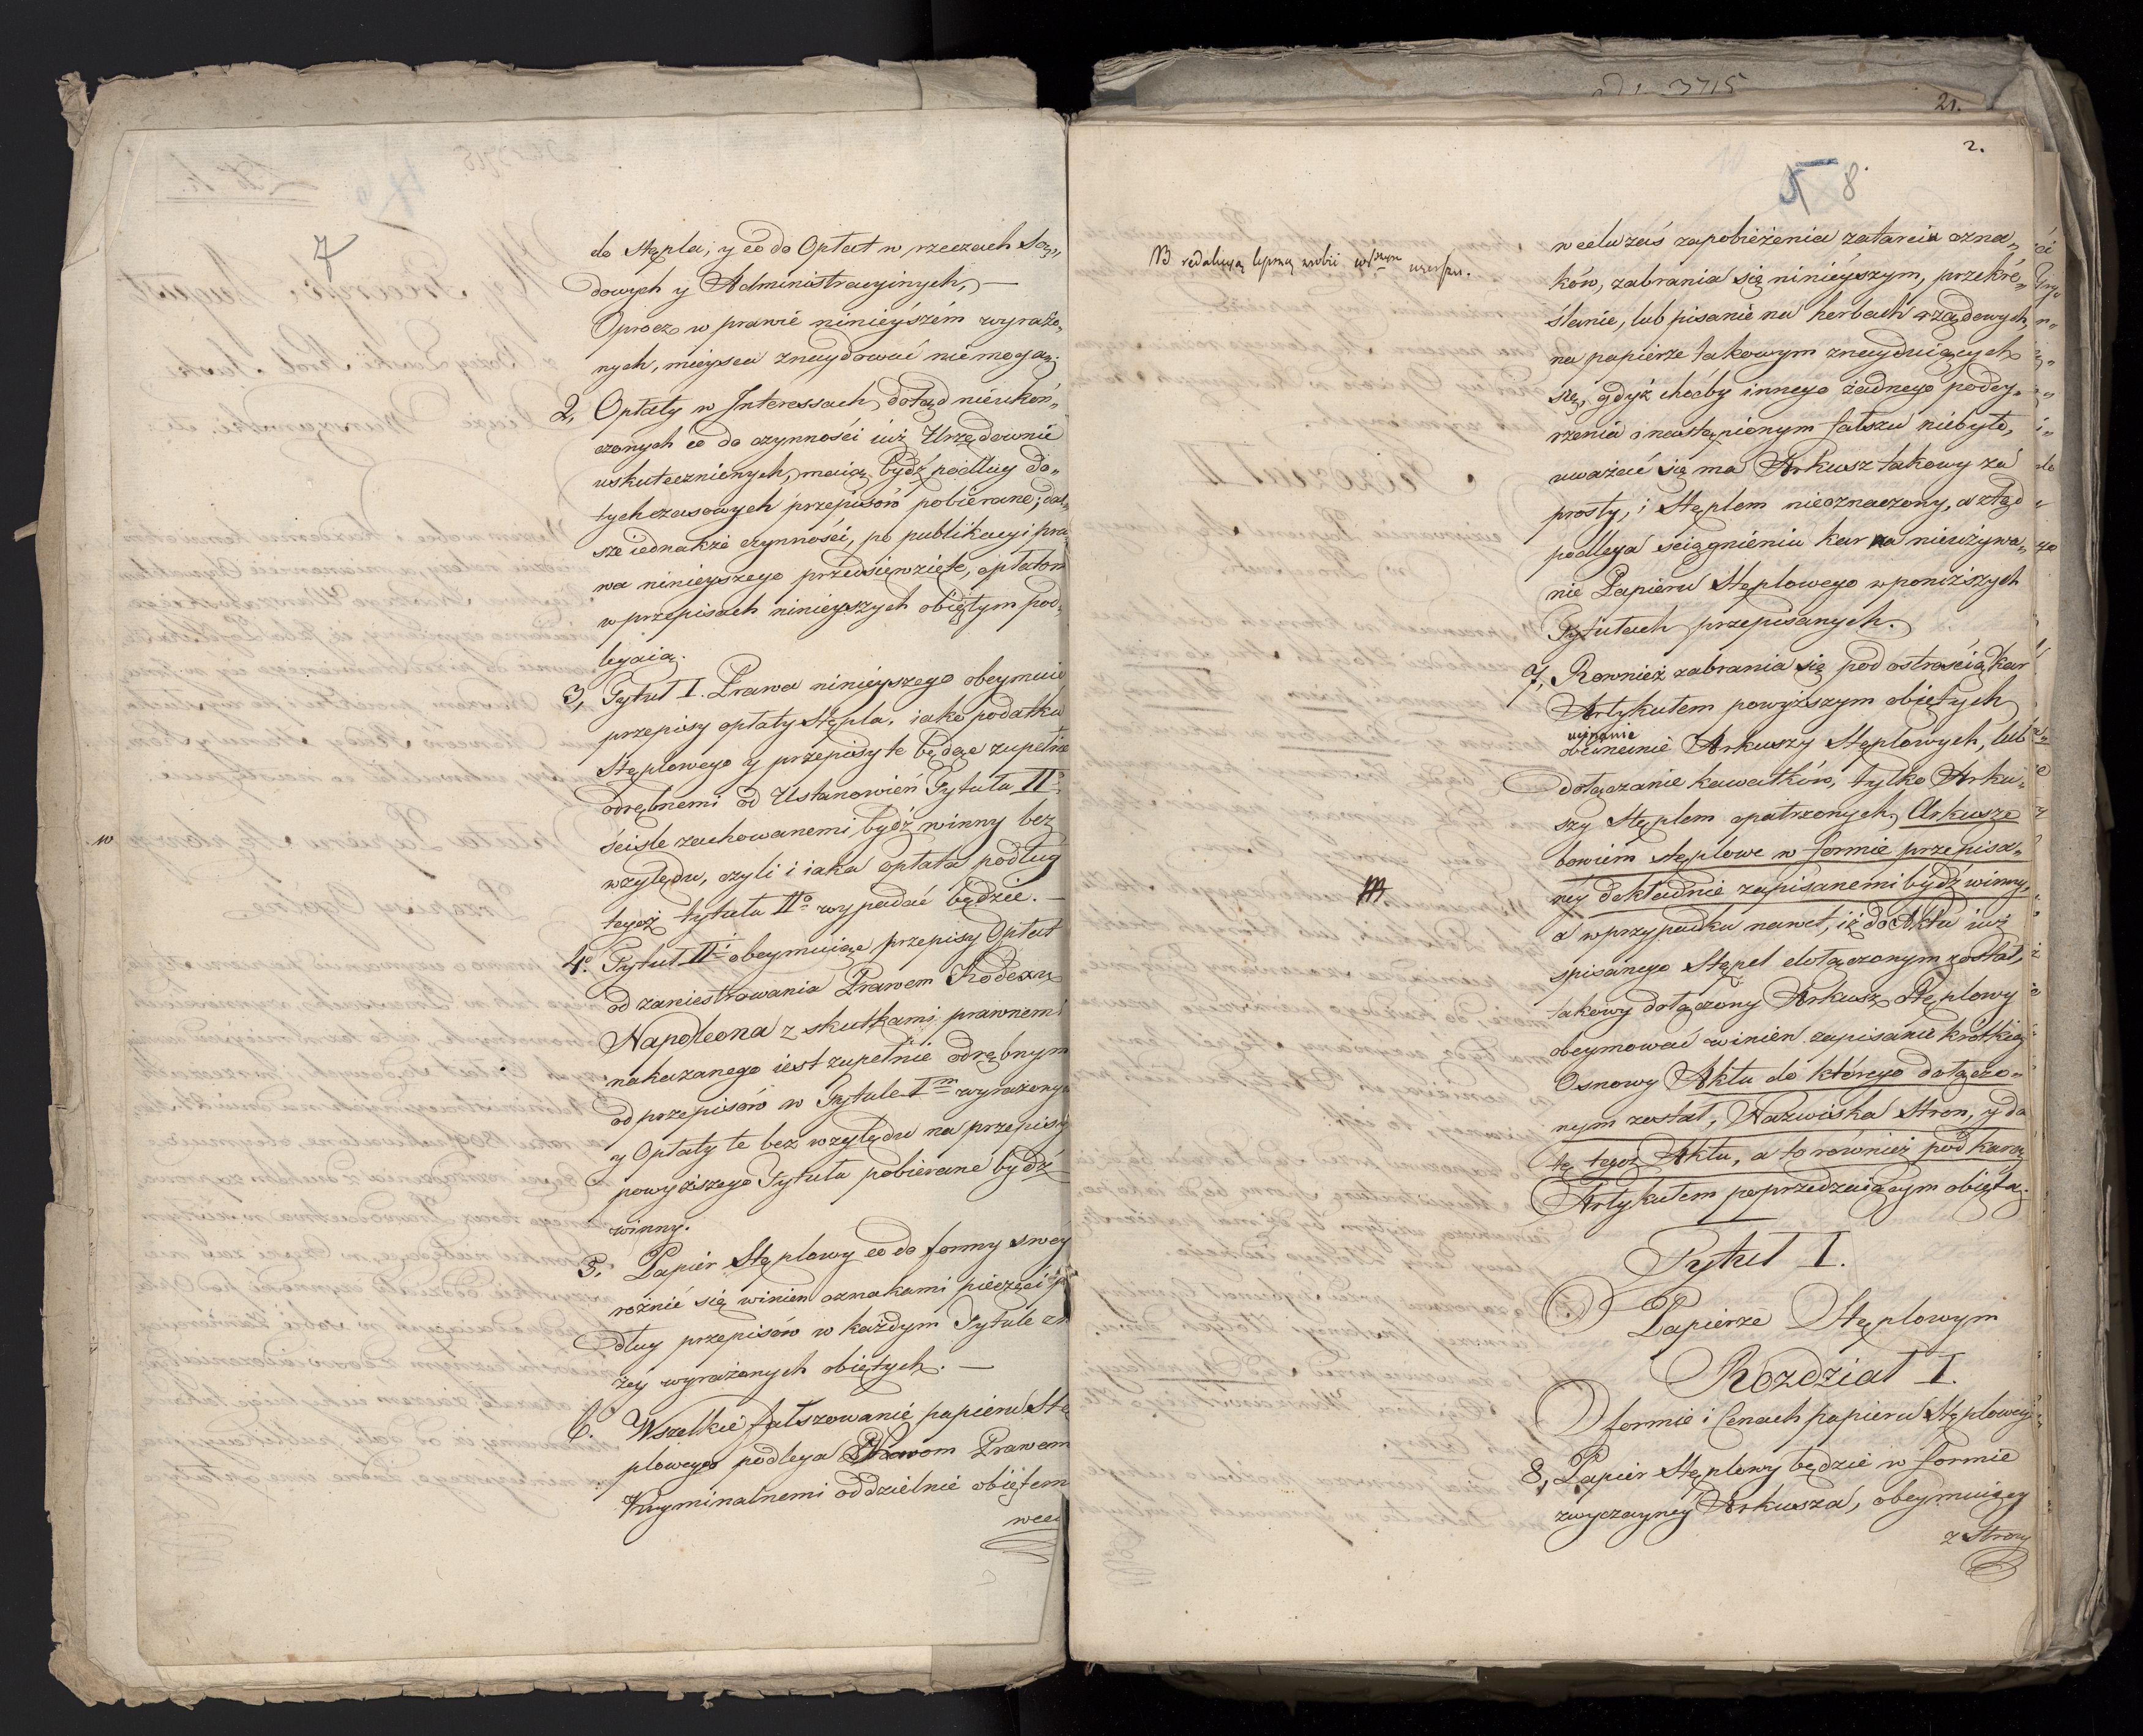 7
do stępla; y co do Opłat w rzeczach Są„
dowych y Administracyinych, —
Oprocz w prawie ninieyszém wyrażo„
nych, mieysca znaydować niemogą.
2, Opłaty w Interessach dotąd nieukoń„
czonych co do czynności iuż Urzędownie
uskutecznionych, maią bydź podług do„
tychczasowych przepisów pobierane; dal„
sze iednakże czynności, po publikacyi pra„
wa ninieyszego przedsięwzięte, opłatom
w przepisach ninieyszych obiętym pod„
legaią.
3, Tytuł I. Prawa ninieyszego obeymuie
przepisy opłaty Stępla, iako podatku
Stęplowego y przepisy te będąc zupełnie
odrębnemi od Ustanowień Tytułu IIo
ściśle zachowanemi bydź winny bez
względu, czyli i iaka opłata podług
tegoż tytułu IIo wypadać będzie. —
4o Tytuł IIi obeymuiące przepisy Opłat
od zaniestrowania Prawem Kodexu
Napoleona z skutkami prawnemi
nakazanego iest zupełnie odrębnym
od przepisów w Tytule Im wyrażonych
y Opłaty te bez względu na przepisy
powyższego Tytułu pobierane bydź
winny.
5. Papier Stęplowy co do formy swey
rożnić się winien oznakami pieczęci p
dług przepisów w każdym Tytule z
żey wyrażonych obiętych. —
6. Wszelkie fałszowanie papieru Stę
plowego podlega Prawom
Kryminalnemi oddzielnie obiętem
wce
21.
2.
5 8
NB redakcyą lepszą zrobić
w celu zaś zapobieżenia zatarcia ozna„
ków, zabrania się ninieyszym, przekré„
ślanie, lub pisanie na herbach rządowych,
na papierze takowym znayduiących
się, gdyż choćby innego żadnego podey„
rzenia o nastąpionym fałszu niebyło,
uważać się ma Arkusz takowy za
prosty, i Stęplem nieoznaczony, a ztąd
podlega sciągnieniu kar za nieużywa„
nie Papieru Stęplowego w poniższych
Tytułach przepisanych.
7, Rownież zabrania się pod ostrością kar
Artykułem powyższym obiętych
ucinanie
obcinanie Arkuszy Stęplowych, lub
dołączanie kawałków, tylko Arku„
szy Stęplem opatrzonych, Arkusze
bowiem stęplowe w formie przepisa„
ney dokładnie zapisanemi bydź winny,
a w przypadku nawet, iż do Aktu iuż
spisanego Stępel dołączonym został,
takowy dołączony Arkusz Stęplowy
obeymować winien zapisanie krótkiey
Osnowy Aktu do którego dołączo„
nym został, Nazwiska Stron, y da
tę tegoż Aktu, a to również pod karą
Artykułem poprzedzaiącym obiętą.
Tytuł I.
O Papierze Stęplowym
Rozdział I.
O formie i Cenach papieru Stęplowey
8, Papier Stęplowy będzie w formie
zwyczayney Arkusza, obeymuiącey
z Strony